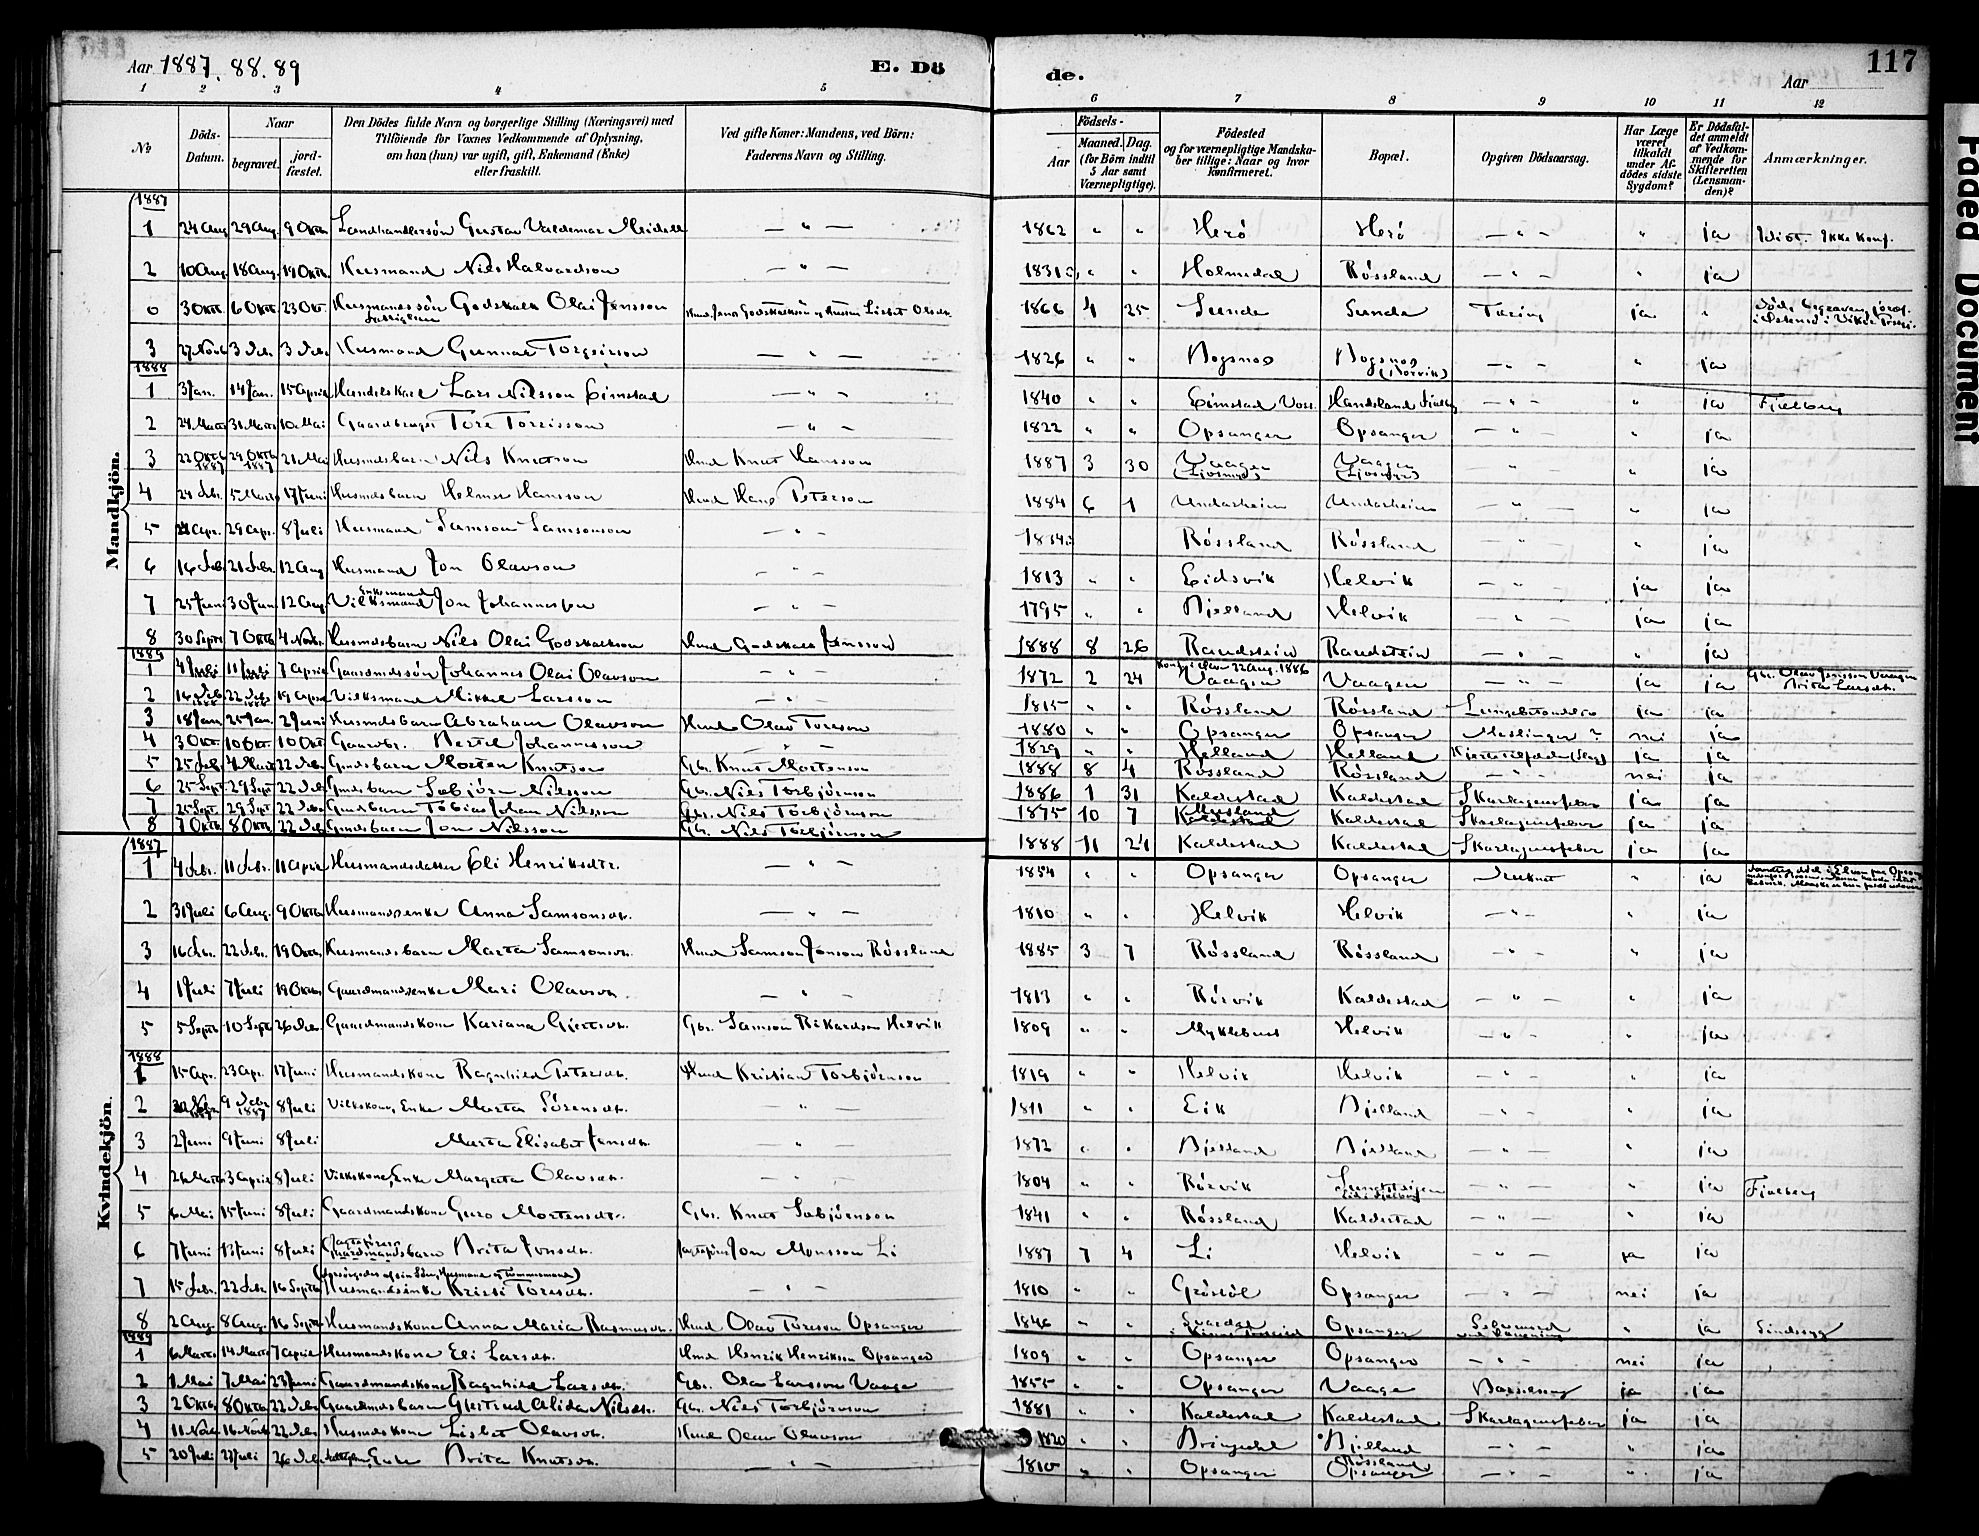 Aar 1887. 88. 89 E. Dö de. Aar 117
1 2 3 4 5 6 7 8 9 10 11 12
№ Döds-Datum. Naar begravet. jord-fæstet. Den Dödes fulde Navn og borgerlige Stilling (Næringsvei) med Tilföiende for Voxnes Vedkommende af Oplysning, om han (hun) var ugift, gift, Enkemand (Enke) eller fraskilt. Ved gifte Koner: Mandens, ved Börn: Faderens Navn og Stilling. Födsels- Aar Maaned. Dag. (for Börn indtil 5 Aar samt Værnepligtige). Födested og for værnepligtige Mandskaber tillige: Naar og hvor konfirmeret. Bopæl. Opgiven Dödsaarsag. Har Læge været tilkaldt under Afdödes sidste Sygdom? Er Dödsfaldet anmeldt af Vedkommende for Skifteretten (Lensmanden)? Anmærkninger.
Mandkjön.
1887
1 24 Aug 29 Aug. 9 Oktb Landhandlersön Gustav Valdemar Meidell — " — 1862 " " Herö Herö — " — " ja Idiot. Ikke Konf.
2 10 Aug. 18 Aug. 19 Oktb. Husmand Nils Halvardson — " — 1831 " " Holmedal Rössland — " — " ja
0 30 Oktb. 6 Oktb. 23 Okt. Husmandssön Godskalk Olai Jensson 1866 4 25 Sunde Sunde Tæring ja "
3 27 Novb 3 Deb. 3 Deb. Husmand Gunnar Torgeirson — " — 1826 " " Bogsnes Bogsnes — " — " ja
1888
1 3 Jan. 14 Jan. 15 April Handelskarl Lars Nilsson Eimstad — " — 1840 " " Eimstad Voss. Handsland Fjelberg — " — " ja Fjelberg
2 24 Marts 31 Marts 10 Mai Gaardbruger Tore Torrisson — " — 1822 " " Opsanger Opsanger — " — " ja
3 22 Oktb 1887 29 Oktb 1887 21 Mai Husmdsbarn Nils Knutson Hmd Knut Hansson 1887 3 30 Vaagen Vaagen " " ja
4 24 Febr. 5 Marts 17 Juni Husmdsbarn Helmer Hansson Hmd Hans Peterson 1884 6 1 Undarheim Undarheim " " ja
5 Apr. 29 Apr. 8 Juli Husmand Samson Samsonson — " — 1834 Rössland Rössland — " — " ja
6 14 Feb 21 Febr. 12 Aug Husmand Jon Olavson — " — 1813 " " Eidsvik Helvik — " — ja ja
7 25 Juni 30 Juni 12 Aug. Enkemand Vilksmand Jon Johannesson — " — 1795 " " Bjelland Helvik — " — ja ja
8 30 Septb 7 Oktb 4 Novb. Husmdsbarn Nils Olai Godskalkson Hmd Godskalk Jensson 1888 8 26 Raudstein Raudstein — " — " ja
1889
1 4 Juli 11 Juli 7 April Gaardmdssön Johannes Olai Olavson — " — 1872 2 24 22 Aug. 1886 Vaagen Vaagen — " — ja ja Gbr. Olav Jensson Vaagen Brita Larsdtr.
2 14 Feb 22 Feb 19 April Vilksmand Mikkel Larsson — " — 1815 " " Rössland Rössland Lungebetændelse ja ja
3 18 Jan 25 Jan. 2 Juni Husmdsbarn Abraham Olavson Hmd Olav Toreson 1880 " " Opsanger Opsanger Meslinger ? nei ja
4 3 Okt. 10 Okt. 10 Okt Gaardbr. Bertel Johannesson — " — 1829 " " Helland Helland Hjertetilfælde (Slag) ja ja
5 25 Feb. 4 Marts 22 Feb. Gmdsbarn Morten Knutson Gbr. Knut Mortenson 1888 8 4 Rössland Rössland — " — nei ja
6 25 Sept 29 Sept 22 Deb Gmdsbarn Sæbjörn Nilsson Gbr. Nils Torbjörnson 1886 1 31 Kaldestad Kaldestad Skarlagensfeber ja ja
7 25 Sept. 29 Sept 22 Deb. Gmdsbarn Tobias Johan Nilsson Gbr. Nils Torbjörnson 1875 10 7 Kaldestad Skarlagensfeber ja ja
8 7 Oktb 8 Oktb 22 Deb Gmdsbarn Jon Nilsson Gbr. Nils Torbjörnson 1888 11 24 Kaldestad Kaldestad Skarlagensfeber ja ja
Kvindekjön.
1887
1 4 Febr. 11 Febr. 11 April Husmandsdatter Eli Henriksdtr. — " — 1854 " " Opsanger Opsanger Druknet " ja
2 31 Juli 6 Aug. 9 Oktb Husmandsenke Anna Samsonsdtr. — " — 1810 " " Helvik Helvik — " — " ja
3 16 Febr. 22 Febr. 19 Oktb. Husmandsbarn Marta Samsonsdtr. Hmd Samson Jonson Rössland 1885 3 7 Rössland Rössland — " " ja
4 1 Juli 7 Juli 19 Oktb. Gaardmandsenke Mari Olavsdtr. — " — 1813 " " Rörvik Kaldestad — " — " ja
5 5 Septb 10 Septb 26 Deb. Gaardmandskone Kariana Gjertsdtr. Gbr. Samson Rikardson Helvik 1809 " " Myklebust Helvik " " ja
1888
1 15 Apr. 23 Apr. 17 Juni Husmandskone Ragnhild Petersdtr. Hmd Kristian Torbjörnson 1819 " " Helvik Helvik — " — " ja
2 9 Debr 1887 8 Juli Vilkskone, Enke Marta Sörensdtr. — " — 1811 " " Eik Bjelland — " — " ja
3 2 Juni 9 Juni 8 Juli Marta Elisabet Jensdtr. — " 1872 " " Bjelland Bjelland — " — " ja
4 26 Marts 3 April 8 Juli Vilkskone, Enke Margreta Olavsdtr. — " — 1804 " " Rörvik — " — " ja Fjelberg
5 6 Mai 15 Juni 8 Juli Gaardmandskone Guro Mortensdtr. Gbr. Knut Sæbjörnson 1841 " " Rössland Kaldestad — " — " ja
6 7 Juni 13 Juni 8 Juli Gaardmandsbarn Brita Jonsdtr. Jon Monsson Li 1887 7 4 Li Helvik " " ja ja
7 15 Febr. 22 Febr. 16 Septb (Forsörgedes af sin Sön, Husmand og Tömmermand) Husmandsenke Kristi Toresdtr. — " — 1810 " " Gröstöl Opsanger — " — nei ja
8 2 Aug. 8 Aug. 16 Septb Husmandskone Anna Maria Rasmusdtr. Hmd Olav Toreson Opsanger 1846 " " Opsanger Selvmord " ja Sindssyg
1889
1 6 Marts 14 Marts 7 April Husmandskone Eli Larsdtr. Hmd Henrik Henrikson Opsanger 1809 " " Opsanger Opsanger — " — nei ja
2 1 Mai 7 Mai 23 Juni Gaardmandskone Ragnhild Larsdtr. Gbr. Ola Larsson Vaage 1855 " " Opsanger Vaage Barselseng ja ja
3 2 Oktb. 8 Oktb. 22 Deb. Gaardmdsbarn Gjertrud Alida Nilsdtr. Gbr. Nils Torbjörnson 1881 " " Kaldestad Kaldestad Skarlagensfeber ja ja
4 11 Novb 16 Novb 22 Deb. Husmdskone Lisbet Olavsdtr. Hmd Olav Olavson 1820 " " Bringedal Bjelland — " — " ja
5 20 Juli 27 Juli 26 Deb. Enke Brita Knutsdtr. — " — 1810 " " Opsanger Rössland Opsanger — " — " ja
Faded Document